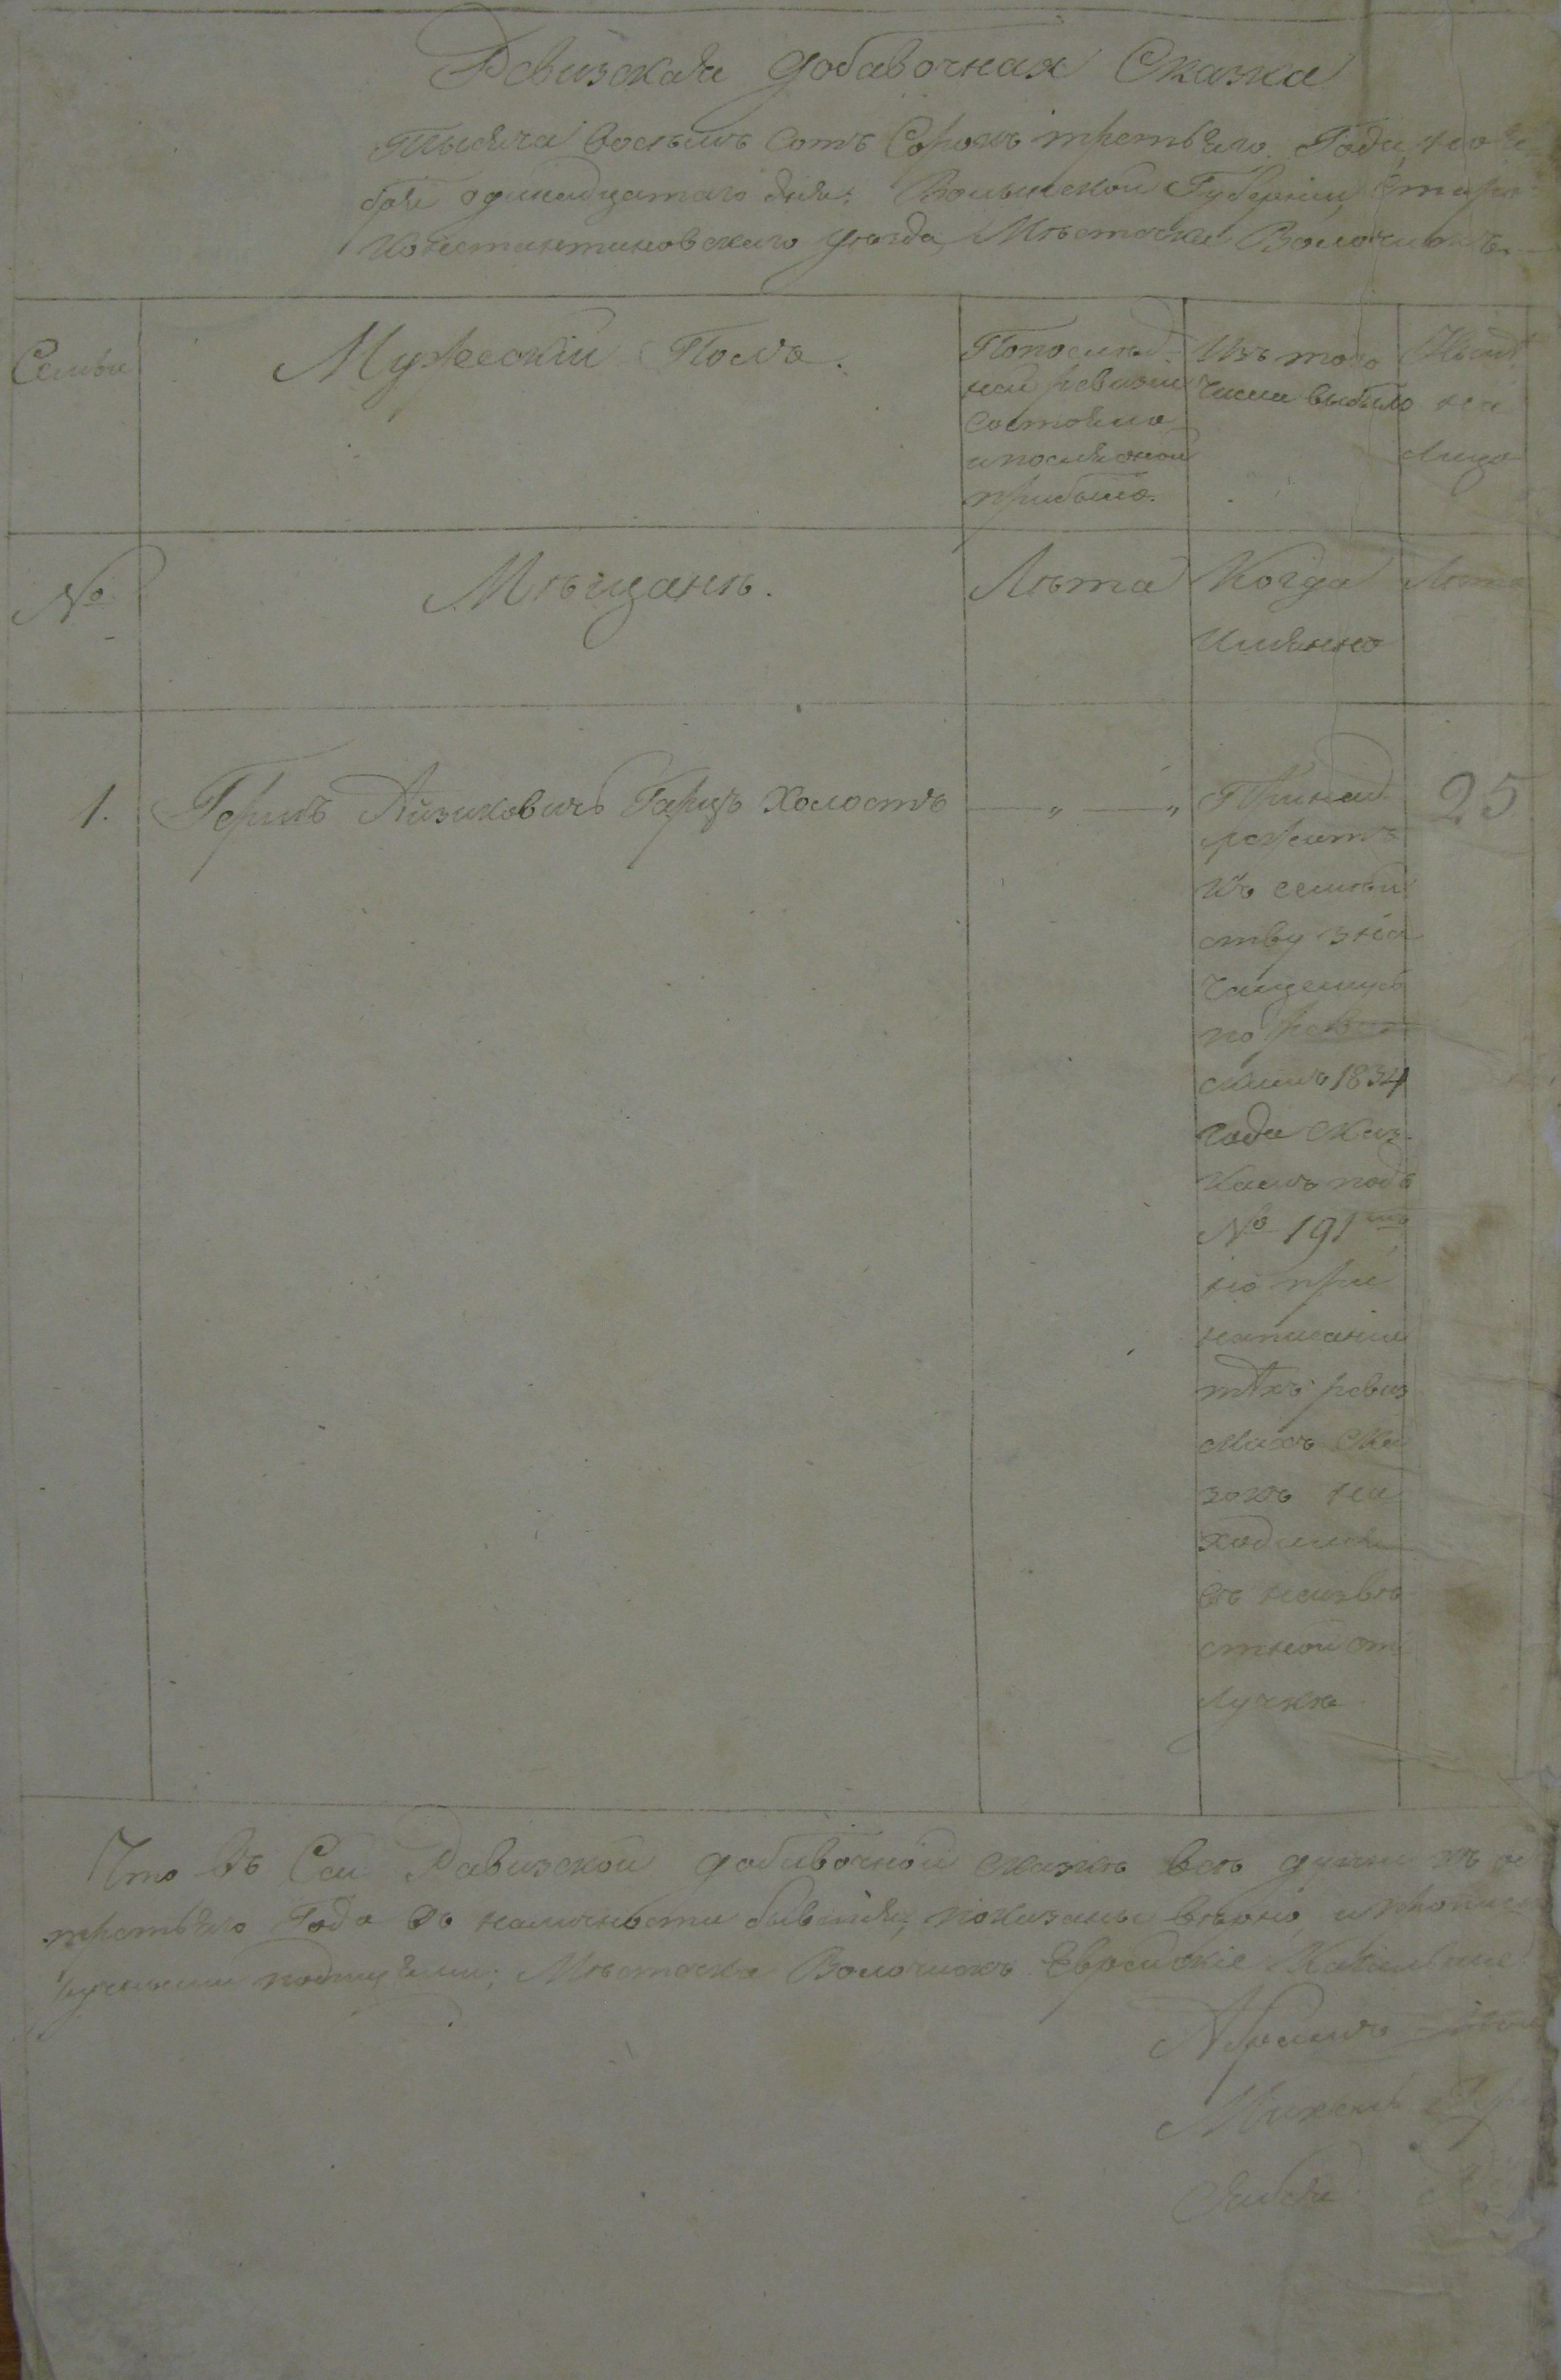 Ревизская добавочная Сказка
Тысяча восемь сотъ Сорокъ третьяго Года, ноя
бря одинадцатого дня; Волынской Губерніи, Старо-
Константиновского уѣзда, Мѣстечка Волочискъ.
Семьи
Мужескій Полъ.
По послѣд-
ней ревизіи
Состояло
и послѣ оной
прибыло.
Изъ того
числа выбыло
на
лицо
№
Мѣщанѣ.
Лѣта
Когда
Имянно
Лѣта
1.
Гершъ Айзиковичъ Гарцъ Холостъ
— „ — „
Принад
лежитъ
Къ семѣй
ству зна
чащемусь
по ревиз
скимъ 1834
года Сказ-
камъ подъ
№ 191мъ
но при
написаніи
тѣхъ ревиз
скихъ Ска
зокъ на
ходился
въ неизвѣ
стной от
лучкѣ
25
Что въ Сей Ревизской добавочной сказкѣ всѣ души къ
третьяго Года въ наличности бывшія, показаны вѣрно, и
Мѣстечка Волочискъ Еврейскіе Кагальные
Абрамъ